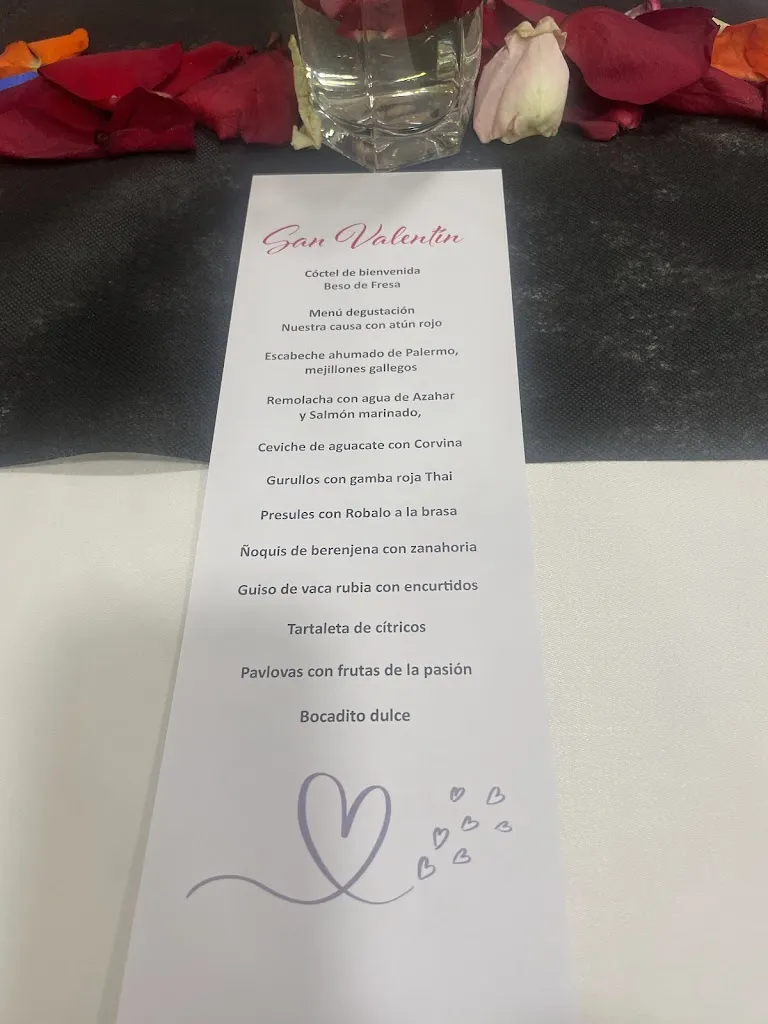 San Valentín
Cóctel de bienvenida
Beso de Fresa
Menú degustación
Nuestra causa con atún rojo
Escabeche ahumado de Palermo,
mejillones gallegos
Remolacha con agua de Azahar
y Salmón marinado,
Ceviche de aguacate con Corvina
Gurullos con gamba roja Thai
Presules con Robalo a la brasa
Ñoquis de berenjena con zanahoria
Guiso de vaca rubia con encurtidos
Tartaleta de cítricos
Pavlovas con frutas de la pasión
Bocadito dulce